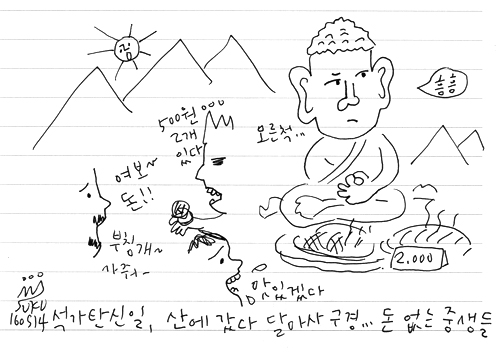 흠흠
500원
2개
있다
모른척...
여보~
돈!!
부침개~
사줘~
맛있겠다
2,000
SUKU
160514
석가탄신일, 산에 갔다 달마사 구경... 돈 없는 중생들